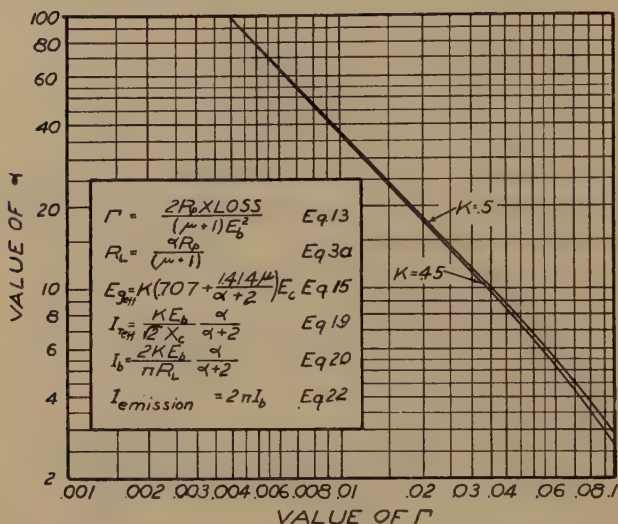 100
80
60
40
20
10
8
6
4
2
VALUE OF α
Γ = 2RpXLOSS / (μ+1)E_b² Eq 13
R_L = αRp / (μ+1) Eq 3a
E_geff = K(.707 + 1.414μ / α+2)E_c Eq 15
I_Teff = KE_b / √2 X_c α / α+2 Eq 19
I_b = 2KE_b / πR_L α / α+2 Eq 20
I emission = 2πI_b Eq 22
K=.5
K=.45
.001 .002 .003 .004 .006 .008 .01 .02 .03 .04 .06 .08 .1
VALUE OF Γ